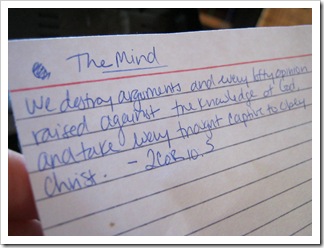 The Mind
We destroy arguments and every lofty opinion
raised against the knowledge of God,
and take every thought captive to obey
Christ. - 2 COR 10.5